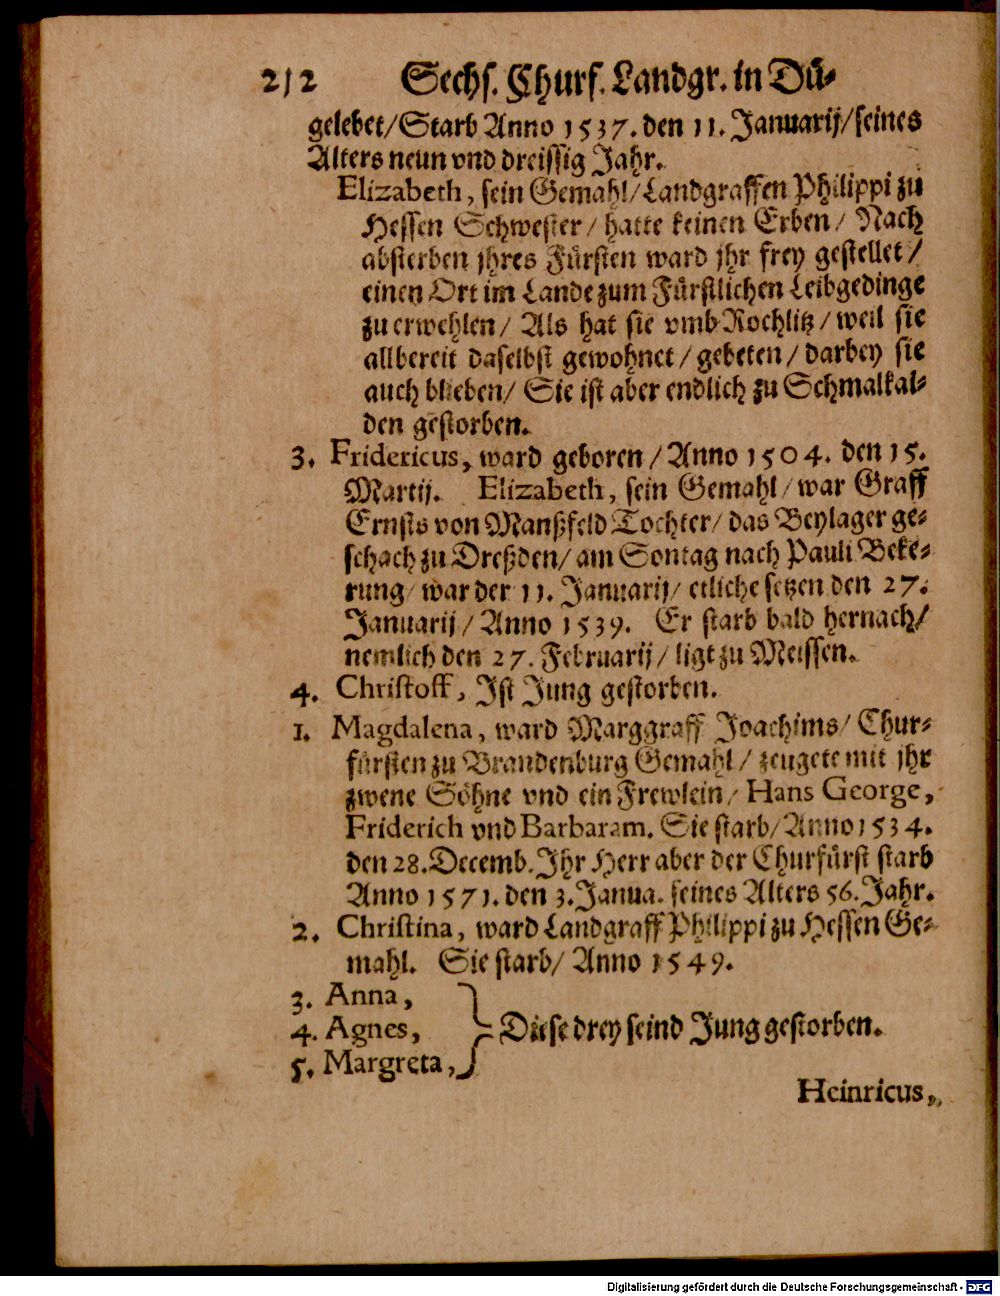 212 Sechs. Churf. Landgr. in Dü-
gelebet/Starb Anno 1537. den 11. Januarij/seines
Alters neun vnd dreissig Jahr.
Elizabeth, sein Gemahl/Landgraffen Philippi zu
Hessen Schwester/ hatte keinen Erben/ Nach
absterben jhres Fürsten ward jhr frey gestellet/
einen Ort im Lande zum Fürstlichen Leibgedinge
zu erwehlen/ Als hat sie vmb Rochlitz/ weil sie
allbereit daselbst gewohnet/ gebeten/ darbey sie
auch blieben/ Sie ist aber endlich zu Schmalkal-
den gestorben.
3. Fridericus, ward geboren/ Anno 1504. den 15.
Martij. Elizabeth, sein Gemahl/ war Graff
Ernsts von Manßfeld Tochter/ das Beylager ge-
schach zu Dreßden/ am Sontag nach Pauli Beke-
rung/ war der 11. Januarij/ etliche setzen den 27.
Januarij/ Anno 1539. Er starb bald hernach/
nemlich den 27. Februarij/ ligt zu Meissen.
4. Christoff, Ist Jung gestorben.
1. Magdalena, ward Marggraff Joachims/ Chur-
fürsten zu Brandenburg Gemahl/ zeugete mit jhr
zwene Söhne vnd ein Frewlein/ Hans George,
Friderich vnd Barbaram. Sie starb/ Anno 1534.
den 28. Decemb. Jhr Herr aber der Churfürst starb
Anno 1571. den 3. Janua. seines Alters 56. Jahr.
2. Christina, ward Landgraff Philippi zu Hessen Ge-
mahl. Sie starb/ Anno 1549.
3. Anna,
4. Agnes, Diese drey seind Jung gestorben.
5. Margreta,
Heinricus,
Digitalisierung gefördert durch die Deutsche Forschungsgemeinschaft - DFG